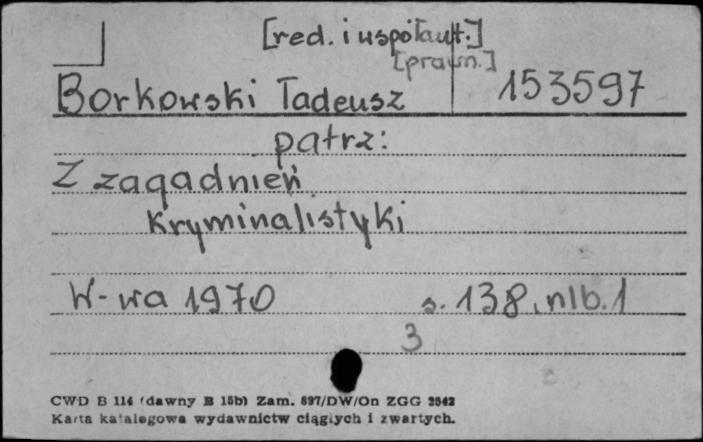 [red. i współaut.]
[prawn.]
Borkowski Tadeusz 153597
patrz:
Z zagadnień
Kryminalistyki
W-wa 1970 s. 138, nlb. 1
3
CWD B 114 (dawny B 15b) Zam. 897/DW/On ZGG 2542
Karta katalogowa wydawnictw ciągłych i zwartych.